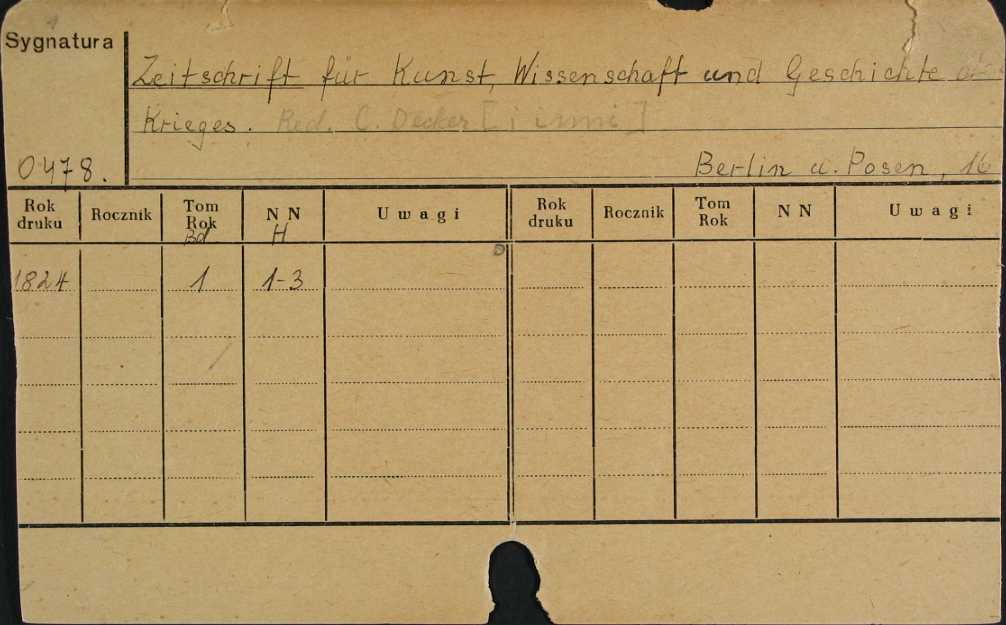 Sygnatura
Zeitschrift für Kunst, Wissenschaft und Geschichte
Krieges. Red. C. Decker [i inni]
0478.
Berlin u. Posen, 16
Rok druku Rocznik Tom Rok N N Uwagi Rok druku Rocznik Tom Rok N N Uwagi
Bd H
1824 1 1-3